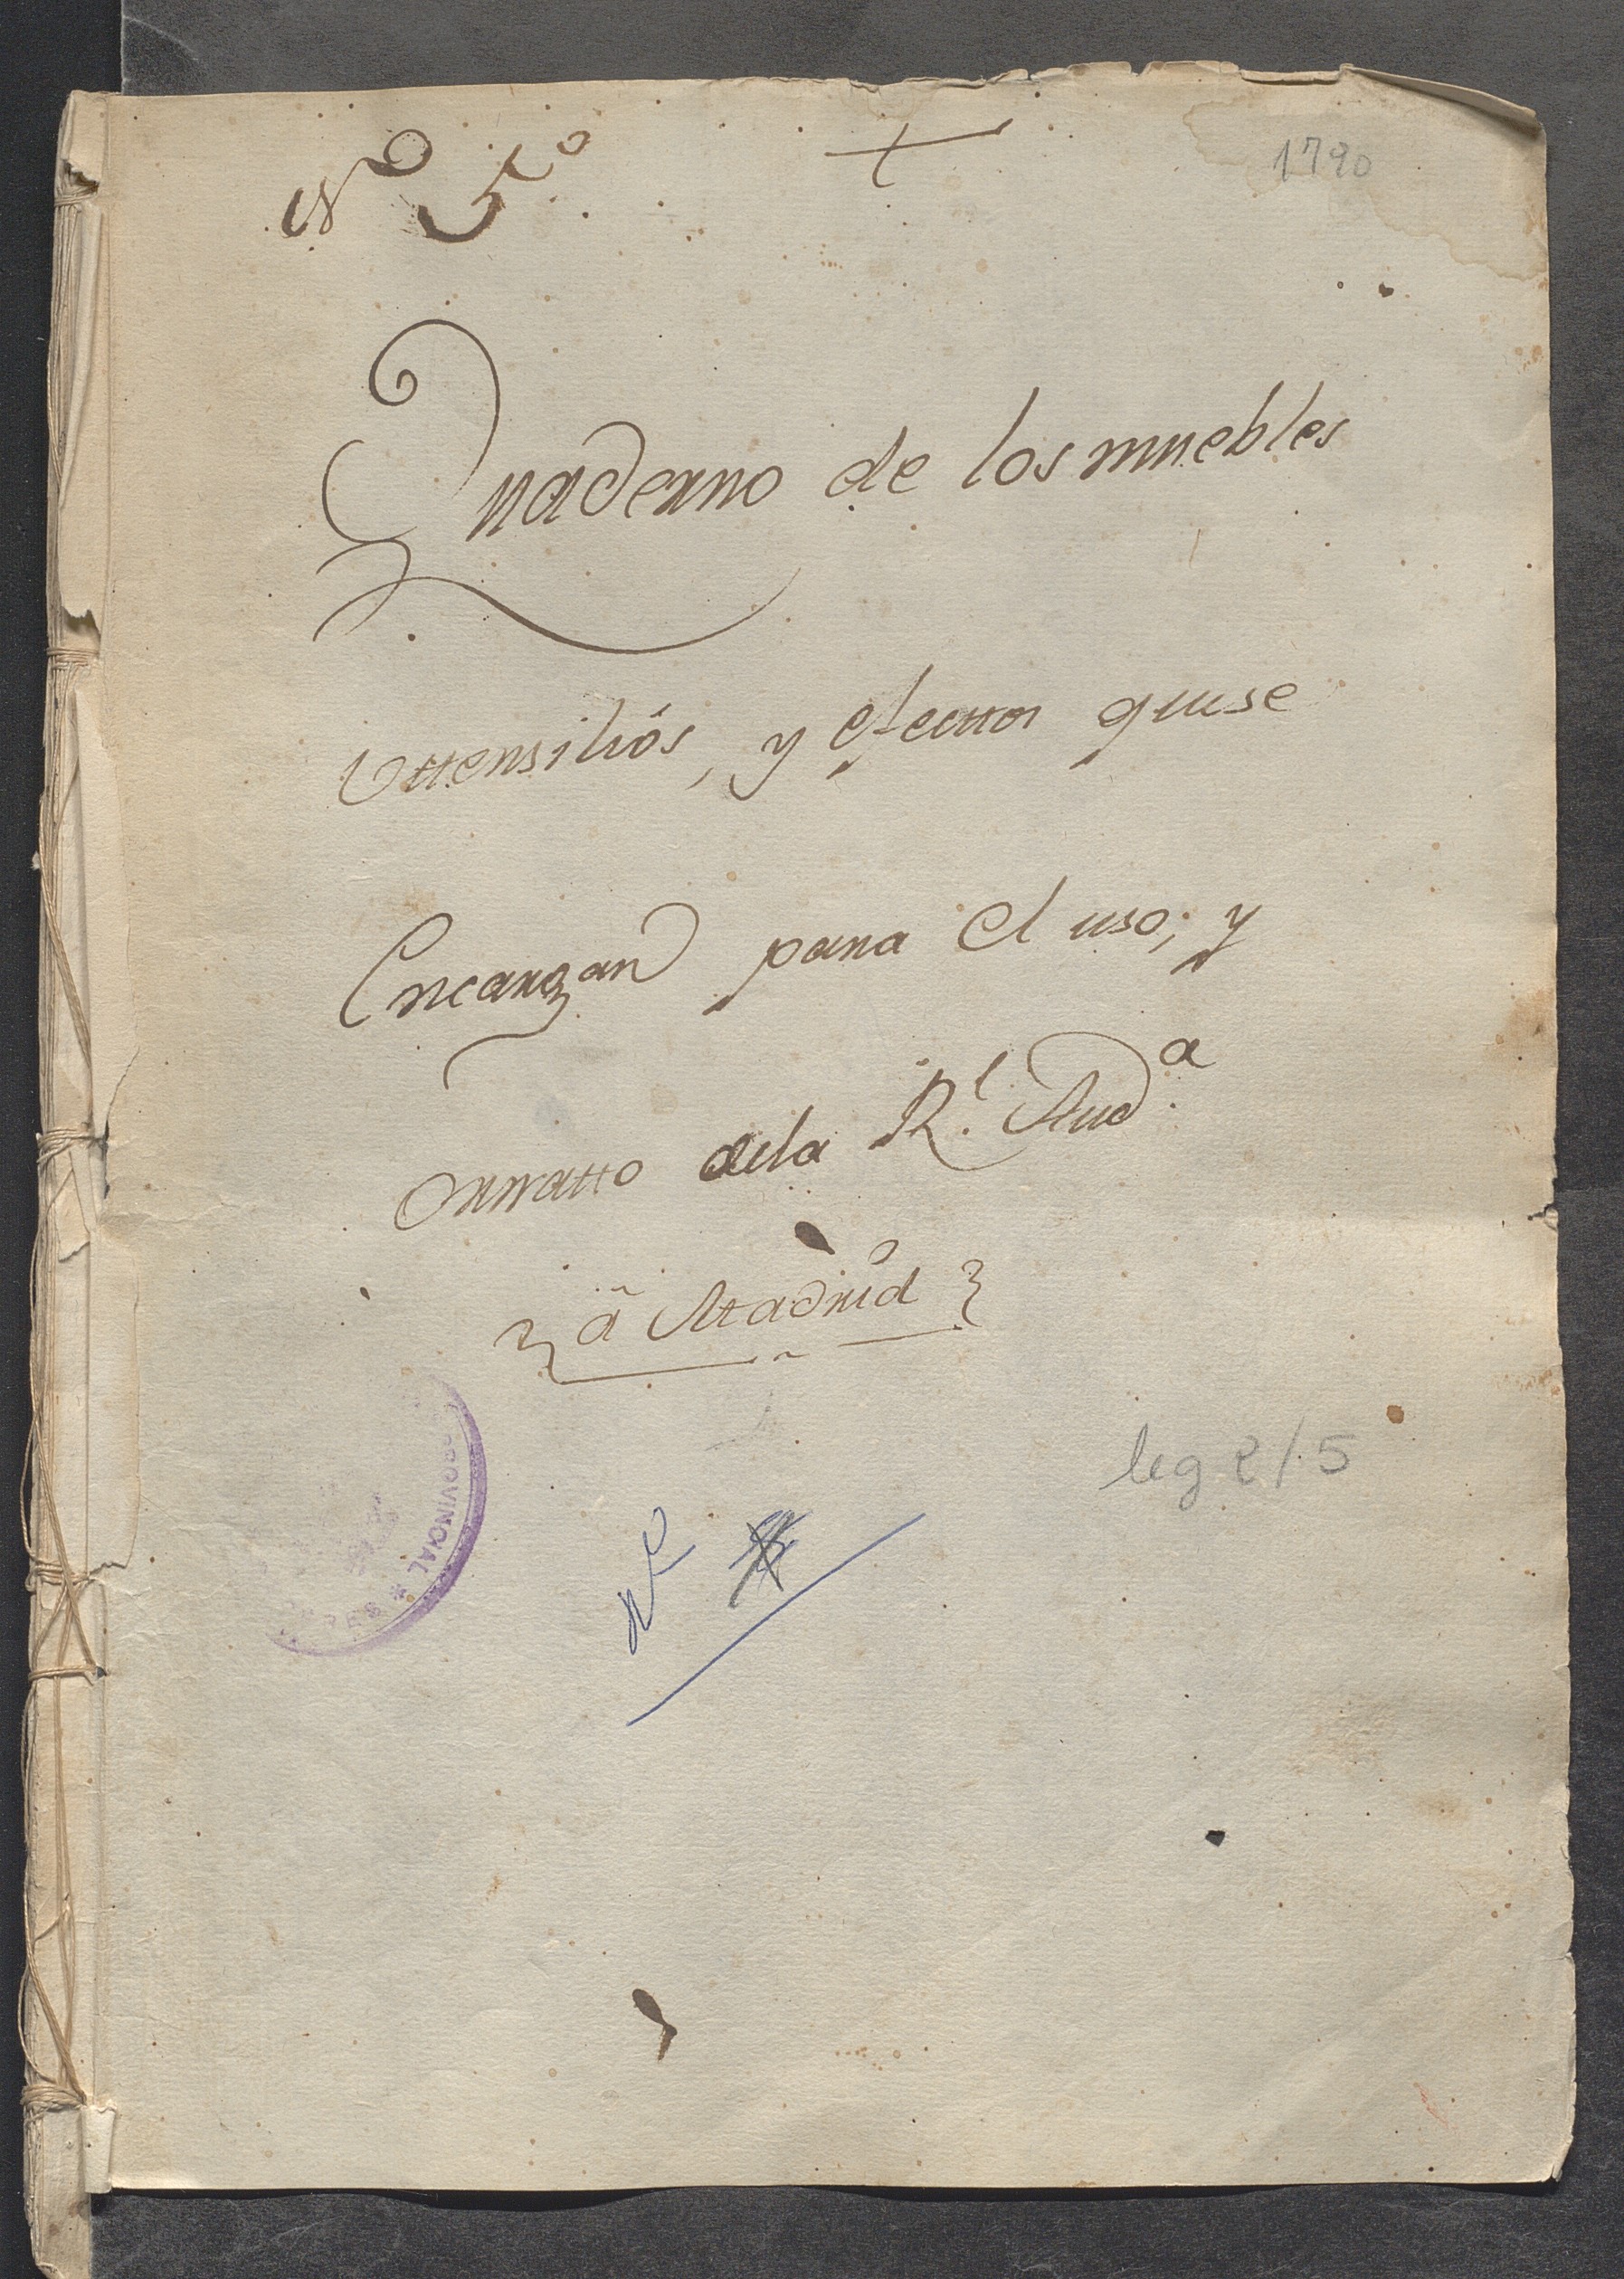 Nº 5º
1790
Quaderno de los muebles
Uttensiliòs, y efecttos quese
Encargan para el uso, y
Ornatto dela Rl. Auda.
â Madrid
leg 2/5
Nº
PROVINCIAL *